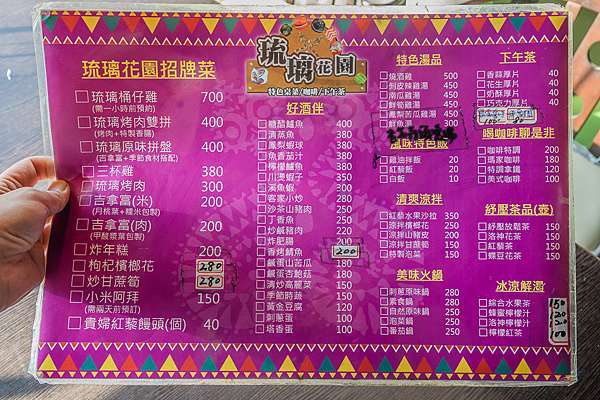 琉璃花園
特色桌菜/咖啡/下午茶
琉璃花園招牌菜
琉璃桶仔雞 700
(需一小時前預約)
琉璃烤肉雙拼 400
(烤肉+特製香腸)
琉璃原味拼盤 400
(吉拿富+季節食材搭配)
三杯雞 380
琉璃烤肉 300
吉拿富(米) 200
(月桃葉+糯米包製)
吉拿富(肉) 200
(甲酸漿葉包製)
炸年糕 200
枸杞檳榔花 280
炒甘蔗筍 280
小米阿拜 150
(需兩天前預訂)
貴婦紅藜饅頭(個) 40
好酒伴
糖醋鱸魚 400
清蒸魚 380
鳳梨蝦球 380
魚香茄汁 380
檸檬鱸魚 380
川燙蝦子 350
溪魚蝦 300
客家小炒 250
沙茶山豬肉 250
丁香魚 250
炒鹹豬肉 220
炸肥腸 200
香烤鯖魚 200
鹹蛋山苦瓜 180
鹹蛋杏鮑菇 180
清炒高麗菜 150
季節時蔬 150
黃金豆腐 120
刺蔥蛋 100
塔香蛋 100
特色湯品
燒酒雞 500
剝皮辣雞湯 450
蒜瓜雞湯 450
鮮筍雞湯 450
鳳梨苦瓜雞湯 450
鮮魚湯 300
風味特色飯
雞油拌飯 20
紅藜飯 20
白飯 10
清爽涼拌
紅藜水果沙拉 350
涼拌檳榔花 250
涼拌山豬皮 200
涼拌甘蔗筍 150
特製泡菜 150
美味火鍋
刺蔥原味鍋 280
素食鍋 280
自然原味鍋 250
泡菜鍋 250
番茄鍋 250
下午茶
香蒜厚片 40
花生厚片 40
奶酥厚片 40
巧克力厚片 40
喝咖啡聊是非
咖啡特調 200
瑪家咖啡 180
特調拿鐵 120
美式咖啡 100
紓壓茶品(壺)
紓壓放鬆茶 150
洛神花茶 150
紅藜茶 150
蝶豆花茶 150
冰涼解渴
綜合水果茶 150
蜂蜜檸檬汁
洛神檸檬汁
檸檬紅茶